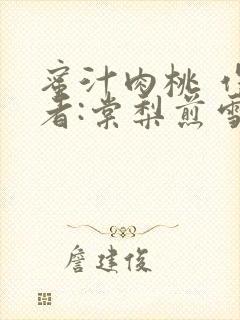 蜜汁肉桃 作
者:棠梨煎雪
詹建俊